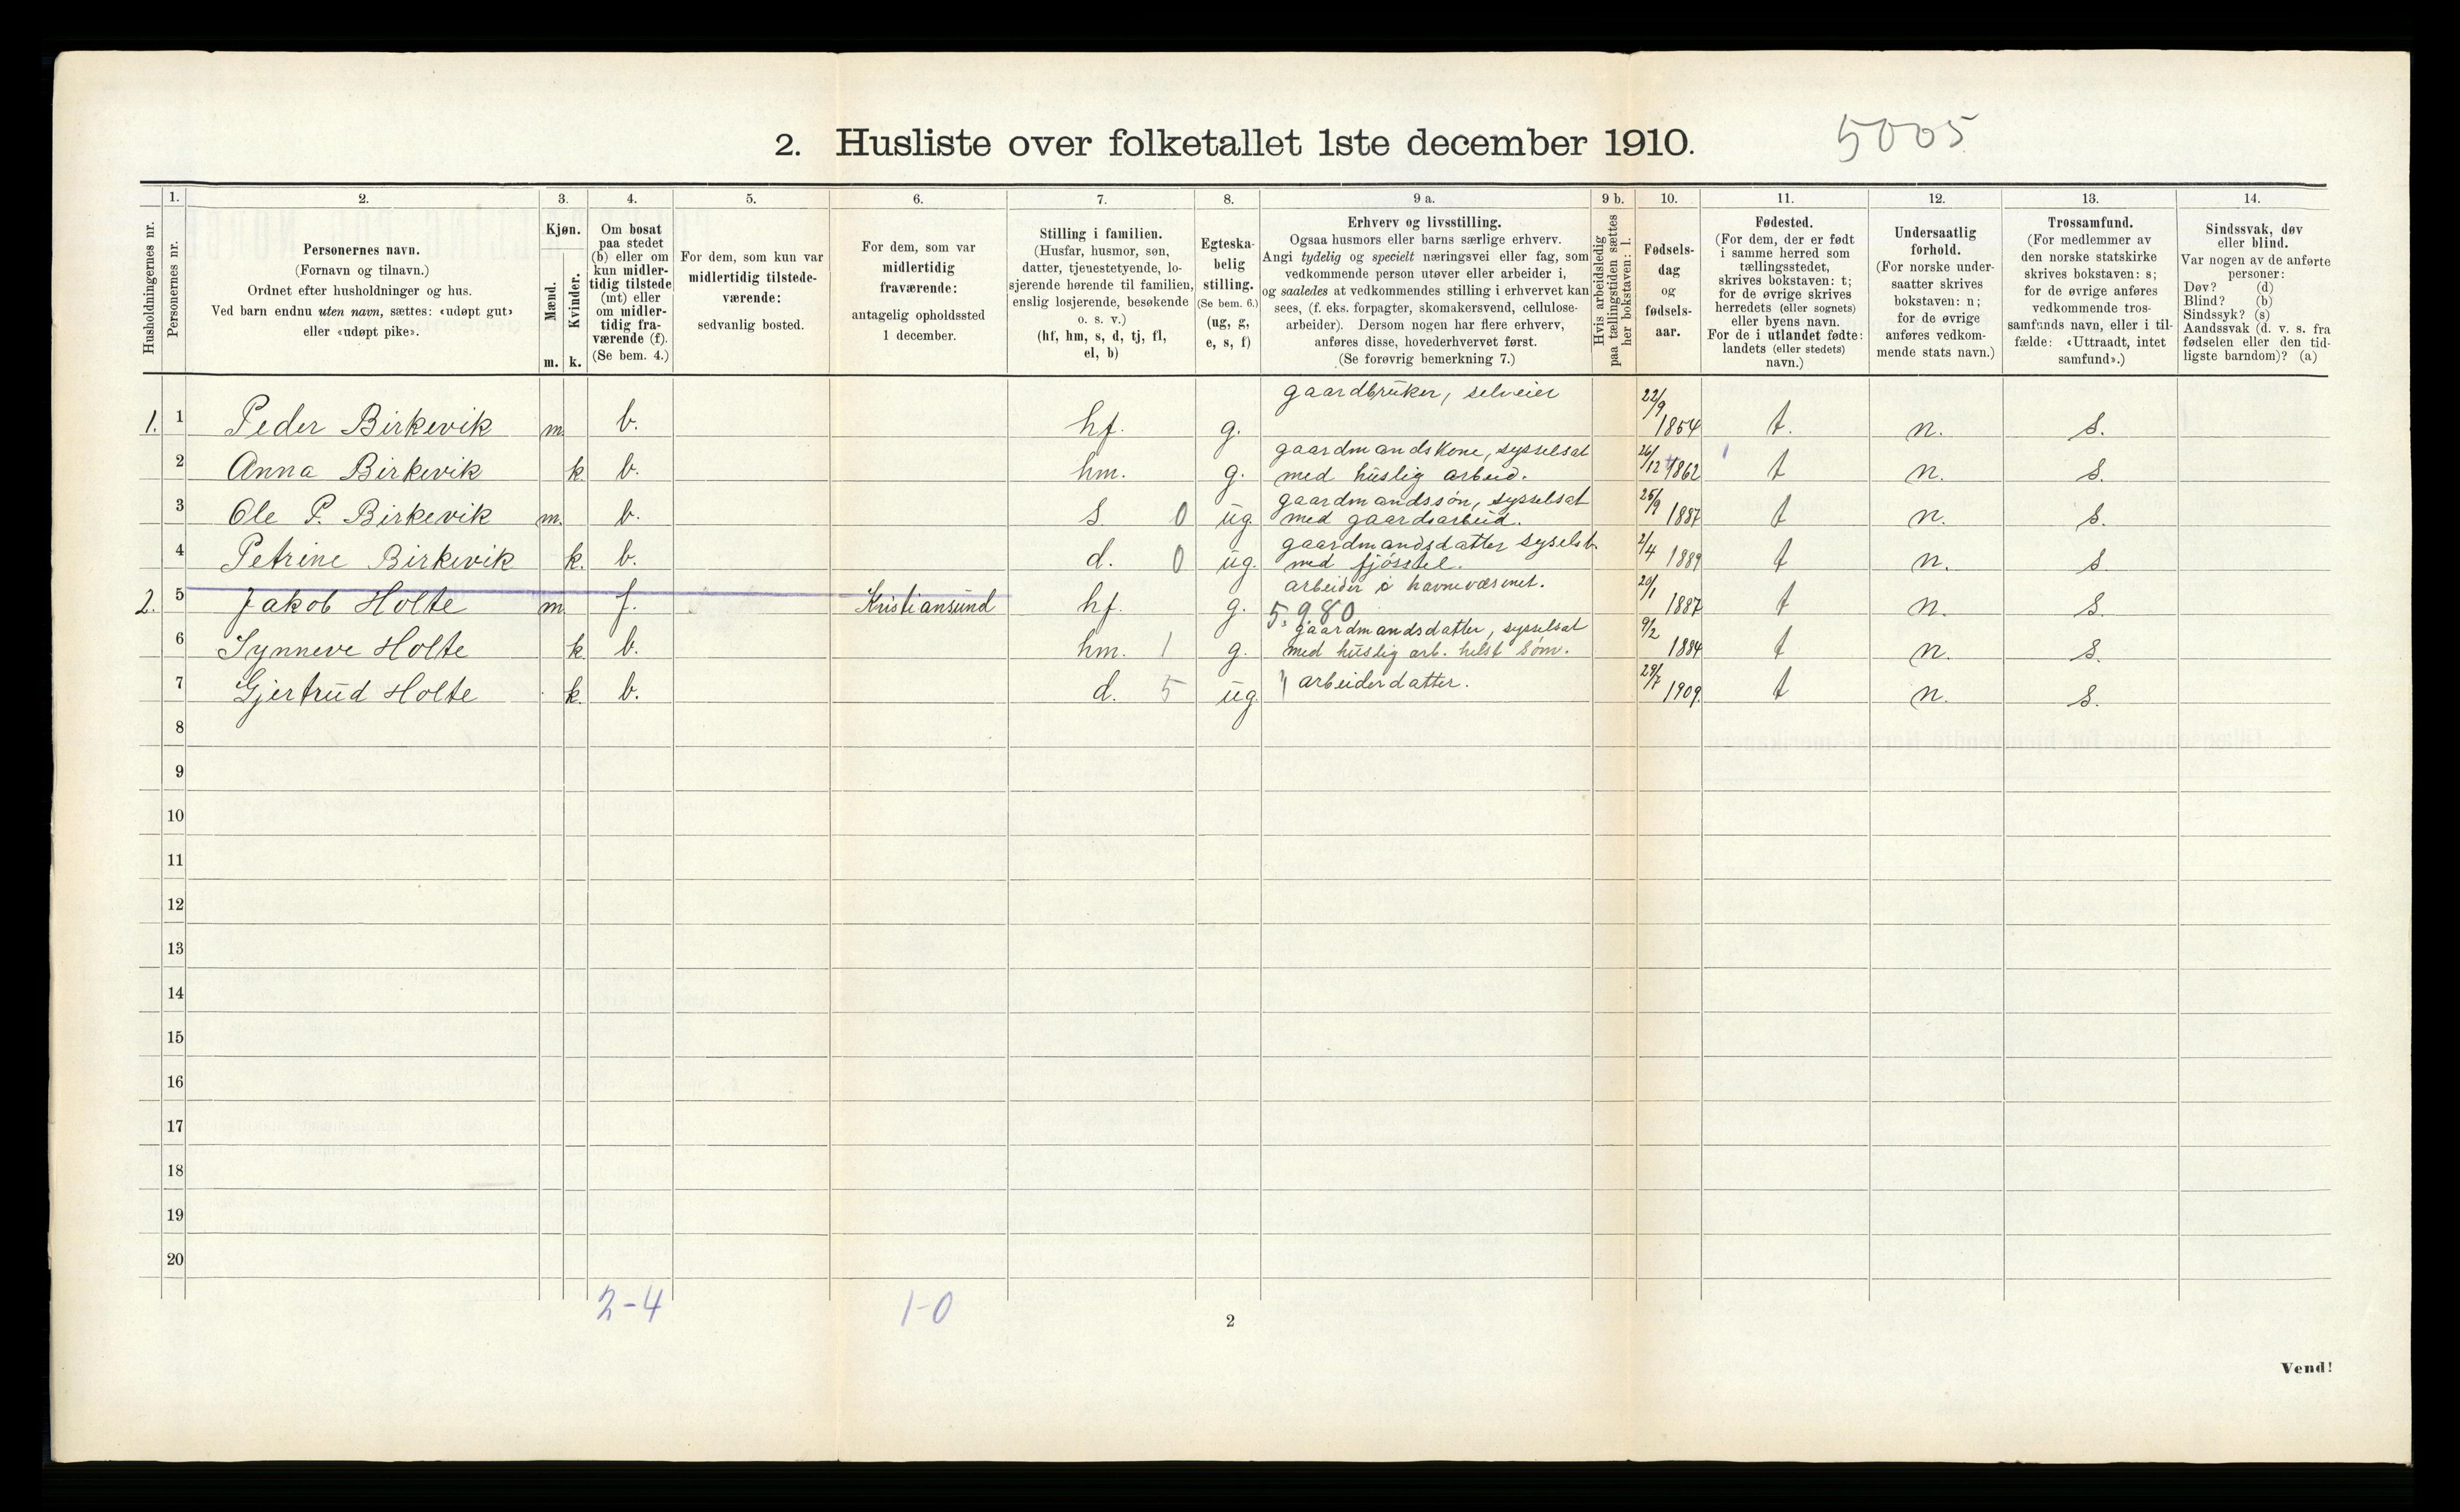 2. Husliste over folketallet 1ste december 1910.
5005
1. 2. 3. 4. 5. 6. 7. 8. 9 a. 9 b. 10. 11. 12. 13. 14.
Husholdningernes nr.
Personernes nr.
Personernes navn.
(Fornavn og tilnavn.)
Ordnet efter husholdninger og hus.
Ved barn endnu uten navn, sættes: «udøpt gut»
eller «udøpt pike».
Kjøn.
Mænd.
Kvinder.
m. k.
Om bosat
paa stedet
(b) eller om
kun midler-
tidig tilstede
(mt) eller
om midler-
tidig fra-
værende (f).
(Se bem. 4.)
For dem, som kun var
midlertidig tilstede-
værende:
sedvanlig bosted.
For dem, som var
midlertidig
fraværende:
antagelig opholdssted
1 december.
Stilling i familien.
(Husfar, husmor, søn,
datter, tjenestetyende, lo-
sjerende hørende til familien,
enslig losjerende, besøkende
o. s. v.)
(hf, hm, s, d, tj, fl,
el, b)
Egteska-
belig
stilling.
(Se bem. 6.)
(ug, g,
e, s, f)
Erhverv og livsstilling.
Ogsaa husmors eller barns særlige erhverv.
Angi tydelig og specielt næringsvei eller fag, som
vedkommende person utøver eller arbeider i,
og saaledes at vedkommendes stilling i erhvervet kan
sees, (f. eks. forpagter, skomakersvend, cellulose-
arbeider). Dersom nogen har flere erhverv,
anføres disse, hovederhvervet først.
(Se forøvrig bemerkning 7.)
Hvis arbeidsledig
paa tællingstiden sættes
her bokstaven: l.
Fødsels-
dag
og
fødsels-
aar.
Fødested.
(For dem, der er født
i samme herred som
tællingsstedet,
skrives bokstaven: t;
for de øvrige skrives
herredets (eller sognets)
eller byens navn.
For de i utlandet fødte:
landets (eller stedets)
navn.)
Undersaatlig
forhold.
(For norske under-
saatter skrives
bokstaven: n;
for de øvrige
anføres vedkom-
mende stats navn.)
Trossamfund.
(For medlemmer av
den norske statskirke
skrives bokstaven: s;
for de øvrige anføres
vedkommende tros-
samfunds navn, eller i til-
fælde: «Uttraadt, intet
samfund».)
Sindssvak, døv
eller blind.
Var nogen av de anførte
personer:
Døv? (d)
Blind? (b)
Sindssyk? (s)
Aandssvak (d. v. s. fra
fødselen eller den tid-
ligste barndom)? (a)
1. 1 Peder Birkevik m. b. hf. g. gaardbruker, selveier 22/9 1854 t. n. s.
2 Anna Birkevik k. b. hm. g. gaardmandskone, sysselsat
med huslig arbeid. 26/12 1862 t n. s.
3 Ole P. Birkevik m. b. s 0 ug. gaardmandssøn, sysselsat
med gaardsarbeid. 25/9 1887 t n. s.
4 Petrine Birkevik k. b. d. 0 ug. gaardmandsdatter syselsb.
med fjøsstel. 2/4 1889 t n. s.
2. 5 Jakob Holte m f. Kristiansund hf. g. arbeider i havnevæsenet.
5.980 20/1 1887 t n. s.
6 Synneve Holte k b. hm. 1 g. gaardmandsdatter, sysselsat
med huslig arb. helst søm. 9/2 1884 t n. s.
7 Gjertrud Holte k. b. d. 5 ug. arbeiderdatter. 29/7 1909. t n. s.
8
9
10
11
12
13
14
15
16
17
18
19
20
2-4 1-0
2
Vend!